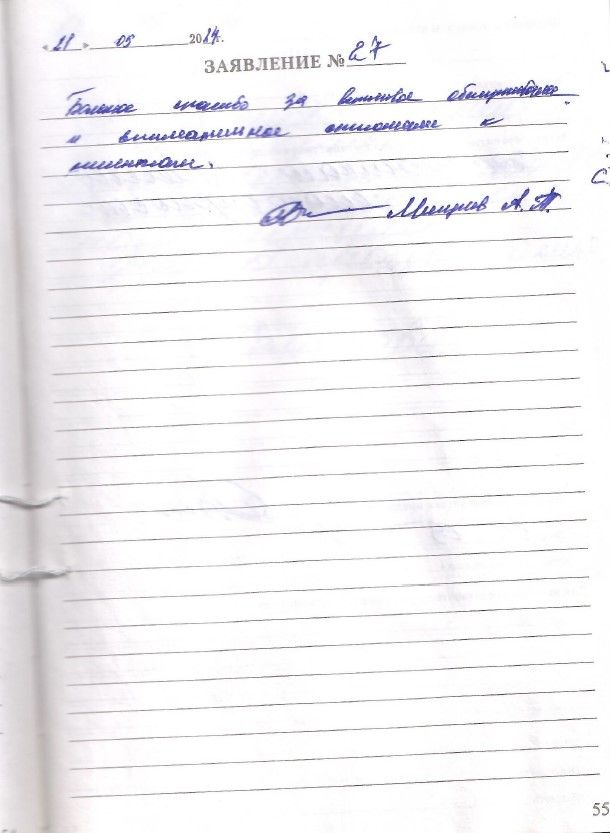 «21» 05 2014г.
ЗАЯВЛЕНИЕ № 27
Большое спасибо за вежливое обслуживание
и внимательное отношение к
клиентам.
А. Т.
55